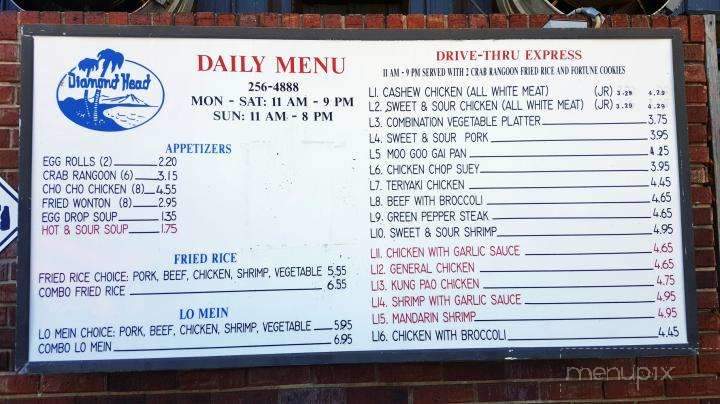 Diamond Head
DAILY MENU
256-4888
MON - SAT: 11 AM - 9 PM
SUN: 11 AM - 8 PM
APPETIZERS
EGG ROLLS (2) 2.20
CRAB RANGOON (6) 3.15
CHO CHO CHICKEN (8) 4.55
FRIED WONTON (8) 2.95
EGG DROP SOUP 1.35
HOT & SOUR SOUP 1.75
FRIED RICE
FRIED RICE CHOICE: PORK, BEEF, CHICKEN, SHRIMP, VEGETABLE 5.55
COMBO FRIED RICE 6.55
LO MEIN
LO MEIN CHOICE: PORK, BEEF, CHICKEN, SHRIMP, VEGETABLE 5.95
COMBO LO MEIN 6.95
DRIVE-THRU EXPRESS
11 AM - 9 PM SERVED WITH 2 CRAB RANGOON FRIED RICE AND FORTUNE COOKIES
L1. CASHEW CHICKEN (ALL WHITE MEAT) (JR) 3.29 4.29
L2. SWEET & SOUR CHICKEN (ALL WHITE MEAT) (JR) 3.29 4.29
L3. COMBINATION VEGETABLE PLATTER 3.75
L4. SWEET & SOUR PORK 3.95
L5 MOO GOO GAI PAN 4.25
L6. CHICKEN CHOP SUEY 3.95
L7. TERIYAKI CHICKEN 4.45
L8. BEEF WITH BROCCOLI 4.65
L9. GREEN PEPPER STEAK 4.65
L10. SWEET & SOUR SHRIMP 4.95
L11. CHICKEN WITH GARLIC SAUCE 4.65
L12. GENERAL CHICKEN 4.65
L13. KUNG PAO CHICKEN 4.75
L14. SHRIMP WITH GARLIC SAUCE 4.95
L15. MANDARIN SHRIMP 4.95
L16. CHICKEN WITH BROCCOLI 4.45
menupix